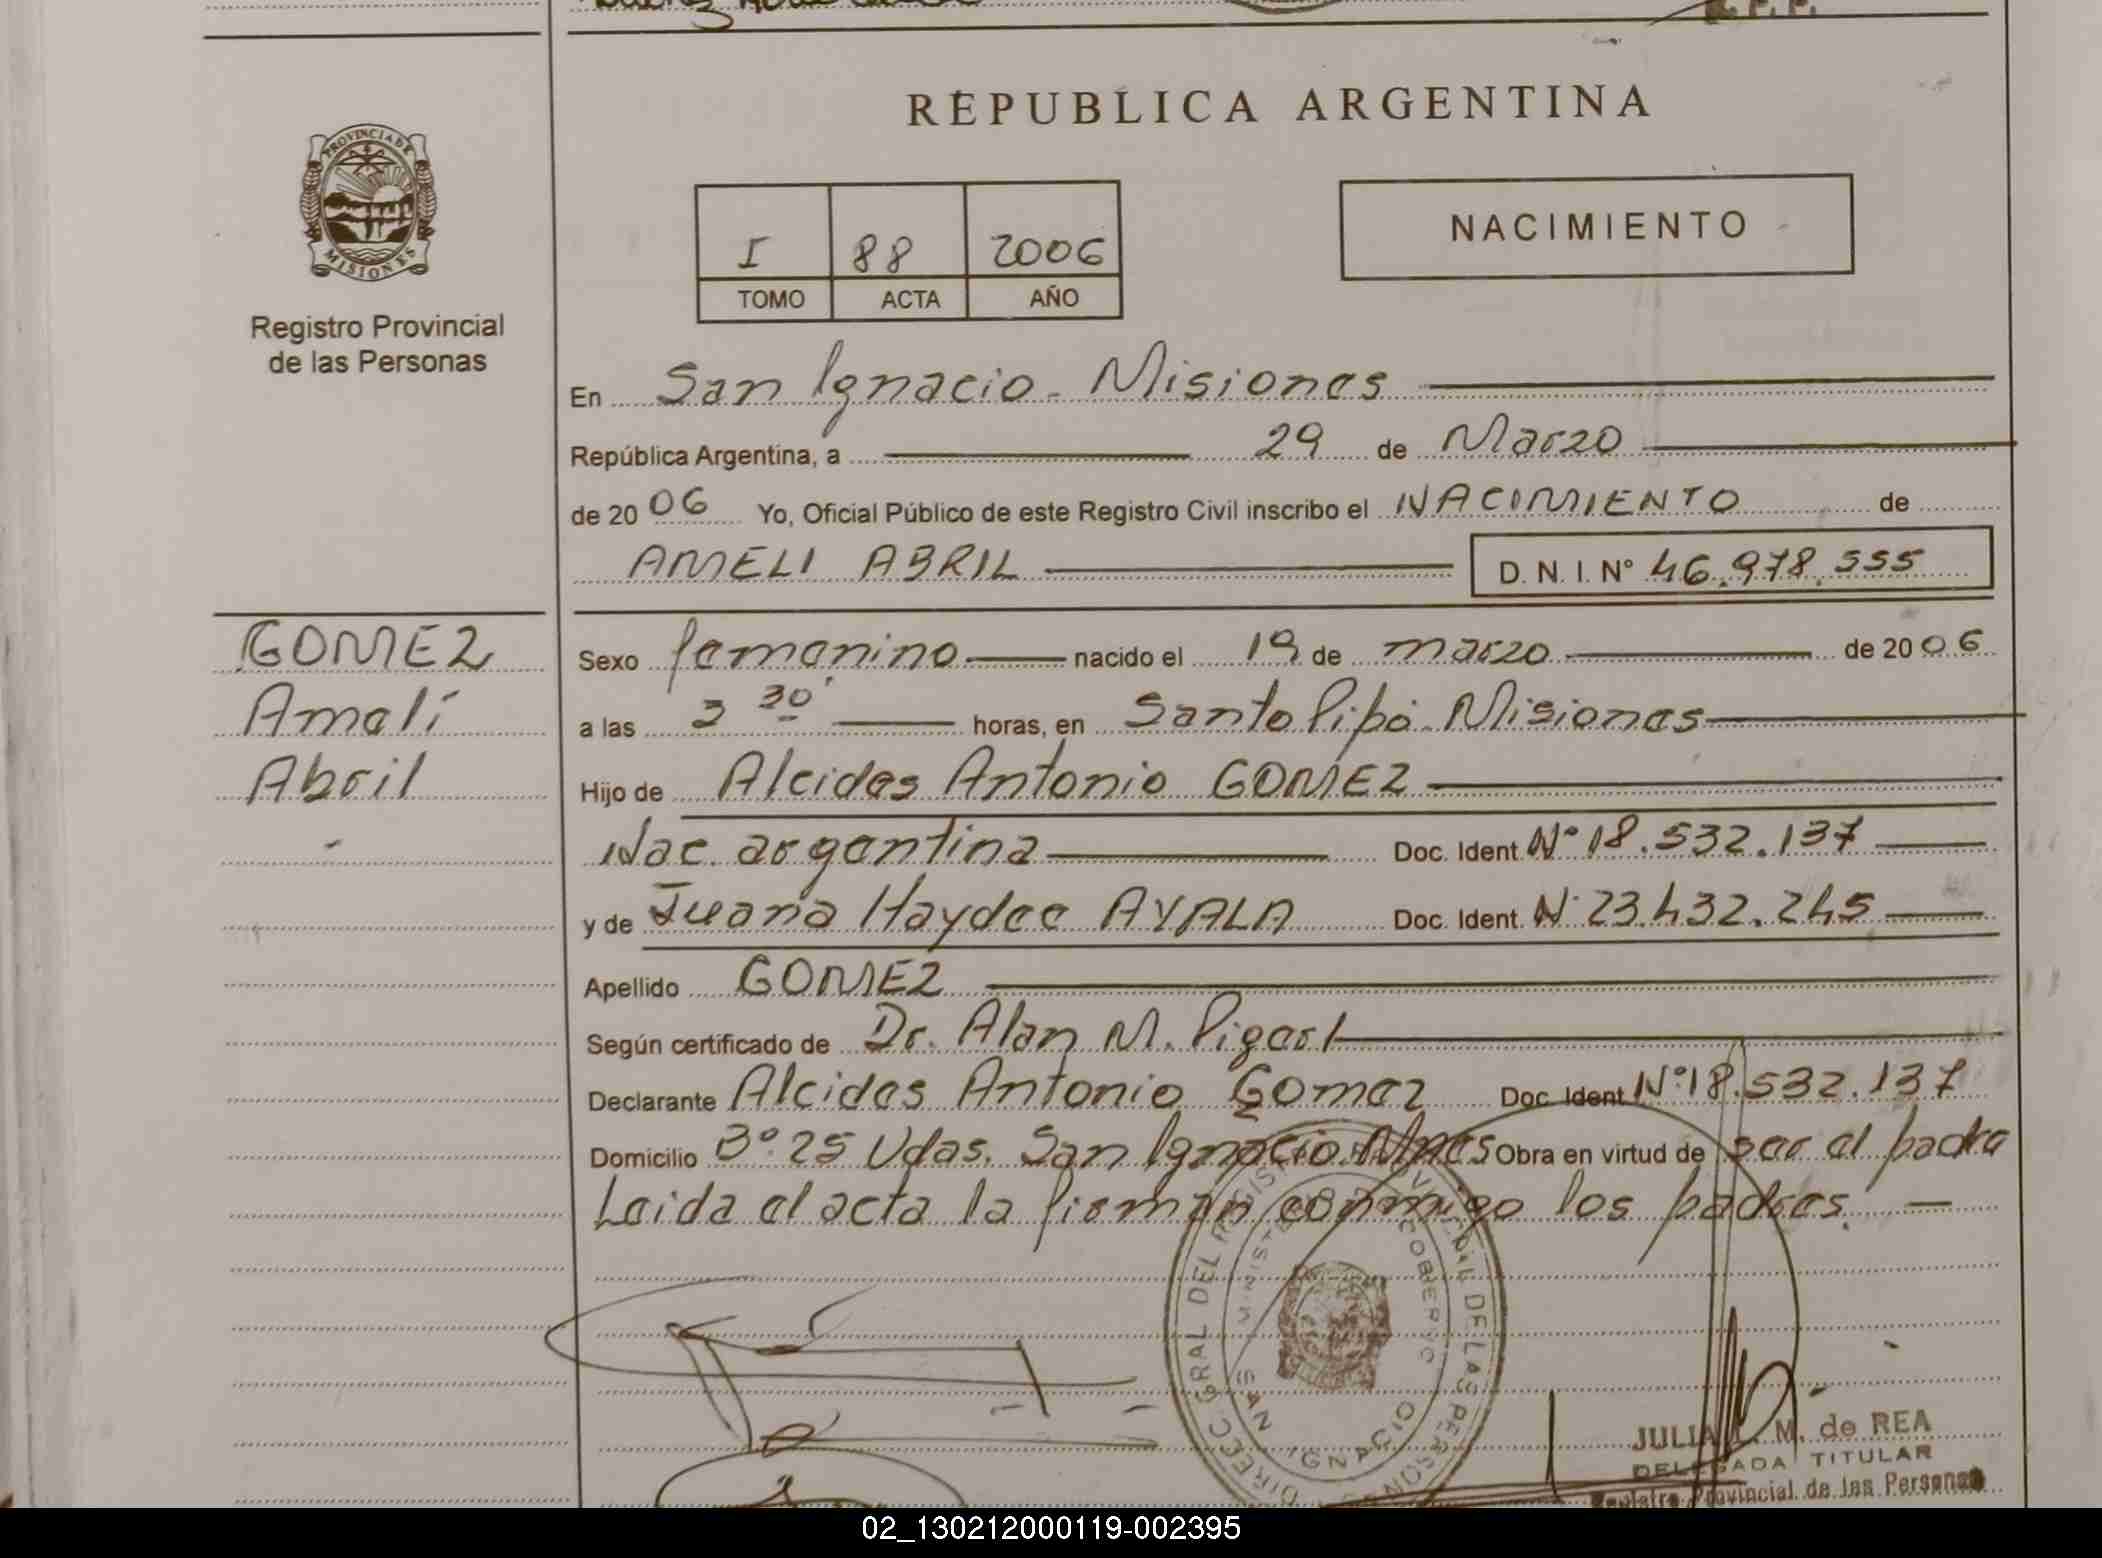 REPUBLICA ARGENTINA
PROVINCIA DE
MISIONES
Registro Provincial
de las Personas
I 88 2006
TOMO ACTA AÑO
NACIMIENTO
En San Ignacio - Misiones
República Argentina, a 29 de Marzo
de 2006 Yo, Oficial Público de este Registro Civil inscribo el NACIMIENTO de
AMELI ABRIL D.N.I. Nº 46.978.555
GOMEZ
Amelí
Abril
Sexo femenino nacido el 19 de marzo de 2006
a las 3 30' horas, en Santo Pipó - Misiones
Hijo de Alcides Antonio GOMEZ
Nac. argentina Doc. Ident. Nº 18.532.137
y de Juana Haydee AYALA Doc. Ident. Nº 23.432.245
Apellido GOMEZ
Según certificado de Dr. Alan M.
Declarante Alcides Antonio Gomez Doc. Ident. Nº 18.532.137
Domicilio Bº 25 Vdas. San Ignacio Mnes Obra en virtud de ser el padre
Leida el acta la firman conmigo los padres. —
DIREC. GRAL DEL REGISTRO PROVINCIAL DE LAS PERSONAS
MINISTERIO DE GOBIERNO
SAN IGNACIO
JULIA M. de REA
DELEGADA TITULAR
Registro Provincial de las Personas
02_130212000119-002395